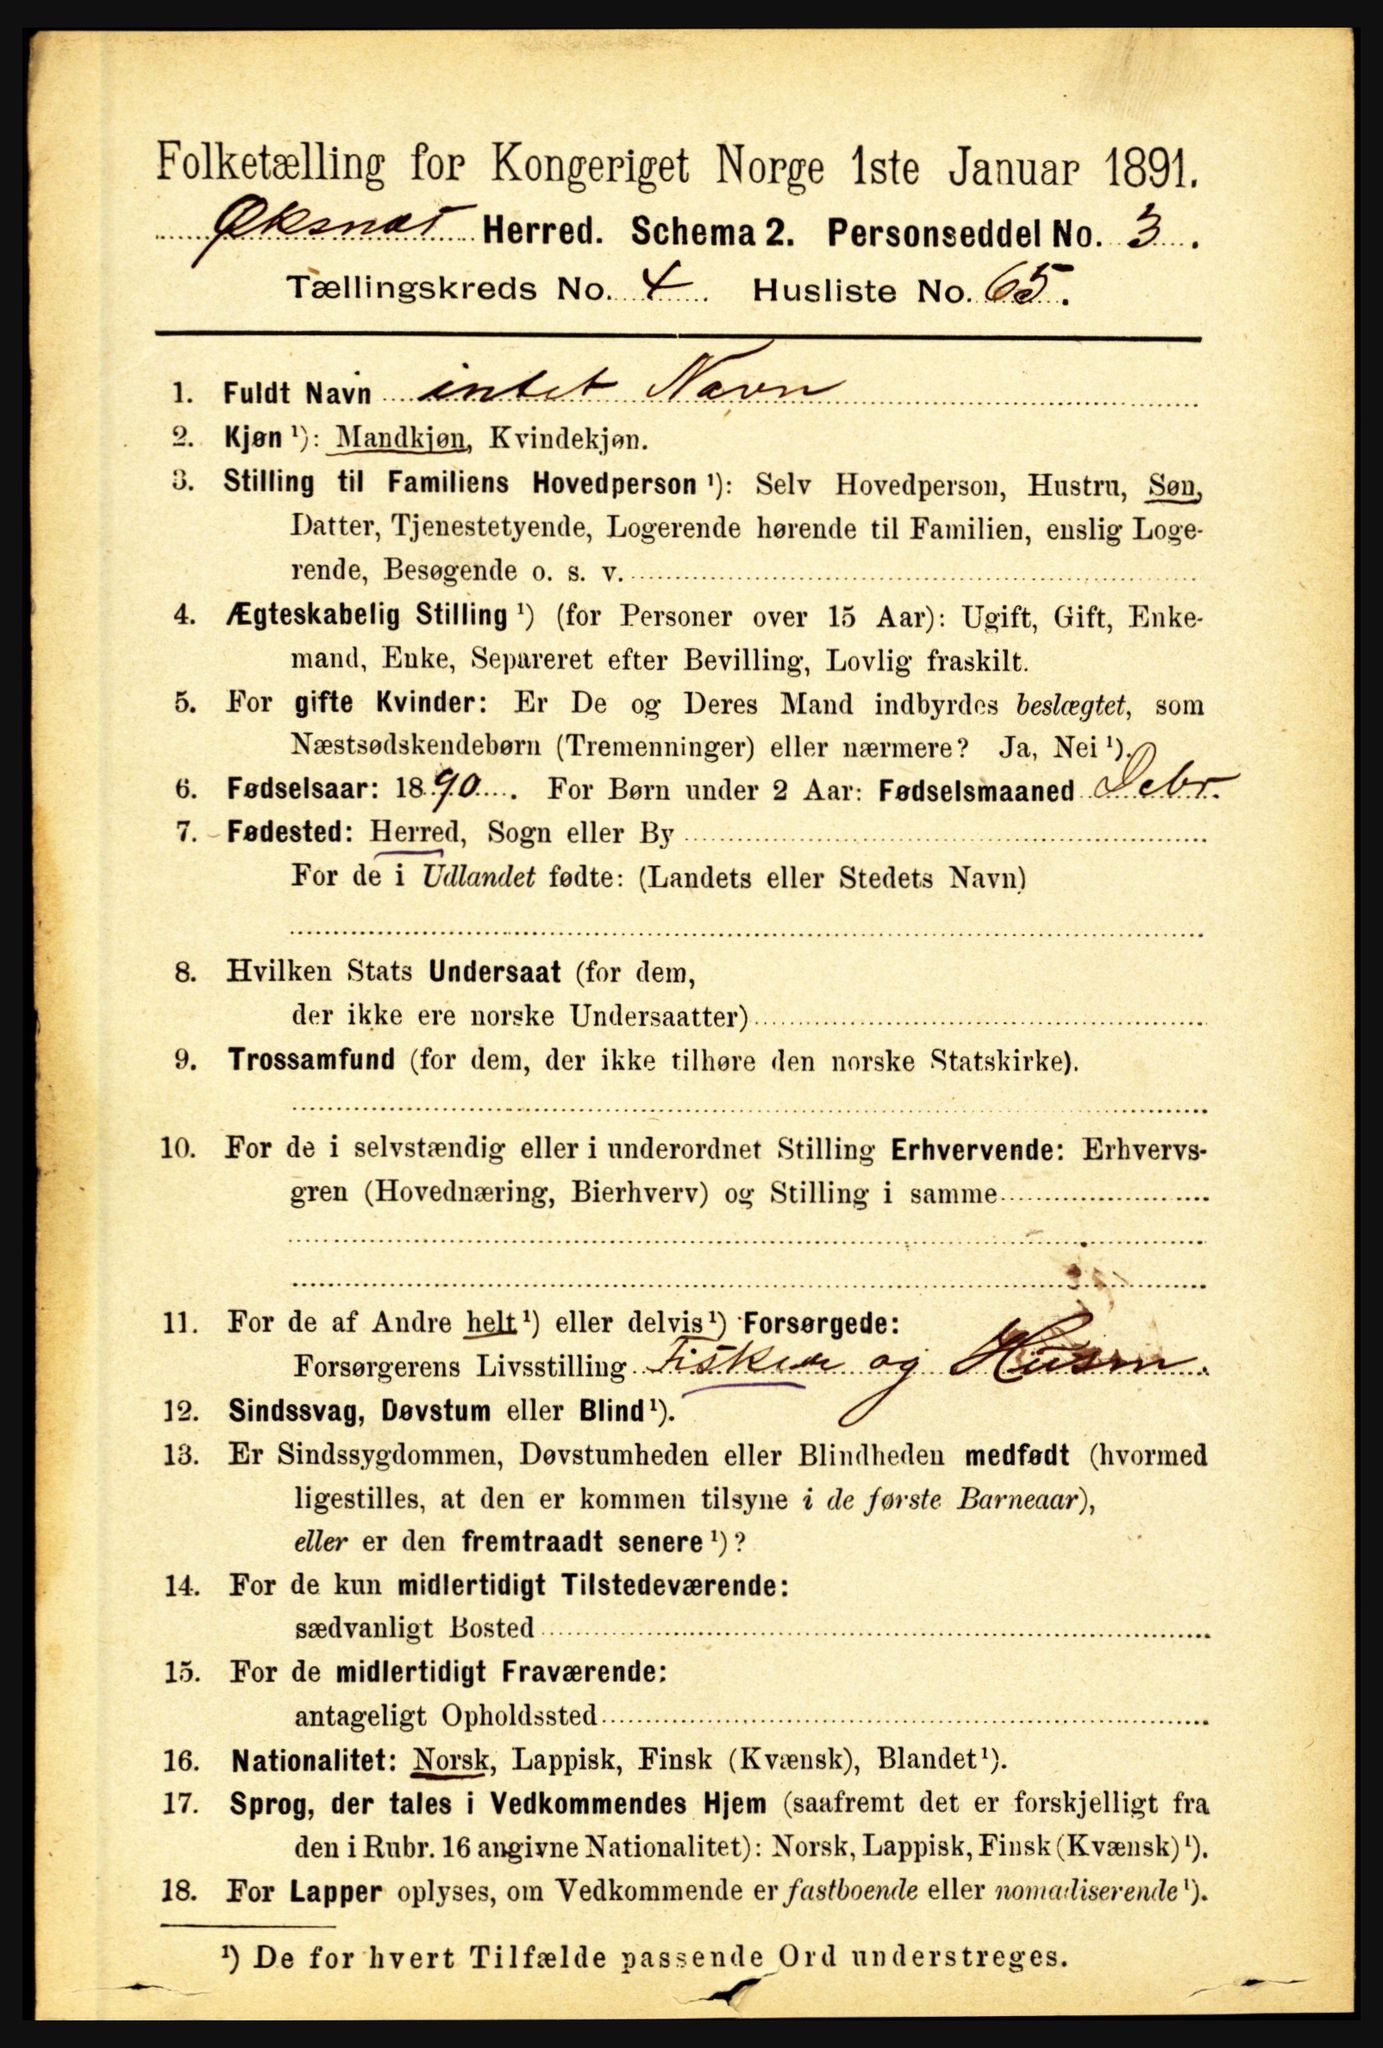 Folketælling for Kongeriget Norge 1ste Januar 1891.
Øksnæs Herred. Schema 2. Personseddel No. 3.
Tællingskreds No. 4 Husliste No. 65.
1. Fuldt Navn intet Navn
2. Kjøn ¹): Mandkjøn, Kvindekjøn.
3. Stilling til Familiens Hovedperson ¹): Selv Hovedperson, Hustru, Søn,
Datter, Tjenestetyende, Logerende hørende til Familien, enslig Loge-
rende, Besøgende o. s. v.
4. Ægteskabelig Stilling ¹) (for Personer over 15 Aar): Ugift, Gift, Enke-
mand, Enke, Separeret efter Bevilling, Lovlig fraskilt.
5. For gifte Kvinder: Er De og Deres Mand indbyrdes beslægtet, som
Næstsødskendebørn (Tremenninger) eller nærmere? Ja, Nei ¹).
6. Fødselsaar: 1890. For Børn under 2 Aar: Fødselsmaaned Debr.
7. Fødested: Herred, Sogn eller By
For de i Udlandet fødte: (Landets eller Stedets Navn)
8. Hvilken Stats Undersaat (for dem,
der ikke ere norske Undersaatter)
9. Trossamfund (for dem, der ikke tilhøre den norske Statskirke).
10. For de i selvstændig eller i underordnet Stilling Erhvervende: Erhvervs-
gren (Hovednæring, Bierhverv) og Stilling i samme
11. For de af Andre helt ¹) eller delvis ¹) Forsørgede:
Forsørgerens Livsstilling Fisker og Husm.
12. Sindssvag, Døvstum eller Blind ¹).
13. Er Sindssygdommen, Døvstumheden eller Blindheden medfødt (hvormed
ligestilles, at den er kommen tilsyne i de første Barneaar),
eller er den fremtraadt senere ¹)?
14. For de kun midlertidigt Tilstedeværende:
sædvanligt Bosted
15. For de midlertidigt Fraværende:
antageligt Opholdssted
16. Nationalitet: Norsk, Lappisk, Finsk (Kvænsk), Blandet ¹).
17. Sprog, der tales i Vedkommendes Hjem (saafremt det er forskjelligt fra
den i Rubr. 16 angivne Nationalitet): Norsk, Lappisk, Finsk (Kvænsk) ¹).
18. For Lapper oplyses, om Vedkommende er fastboende eller nomadiserende ¹).
¹) De for hvert Tilfælde passende Ord understreges.